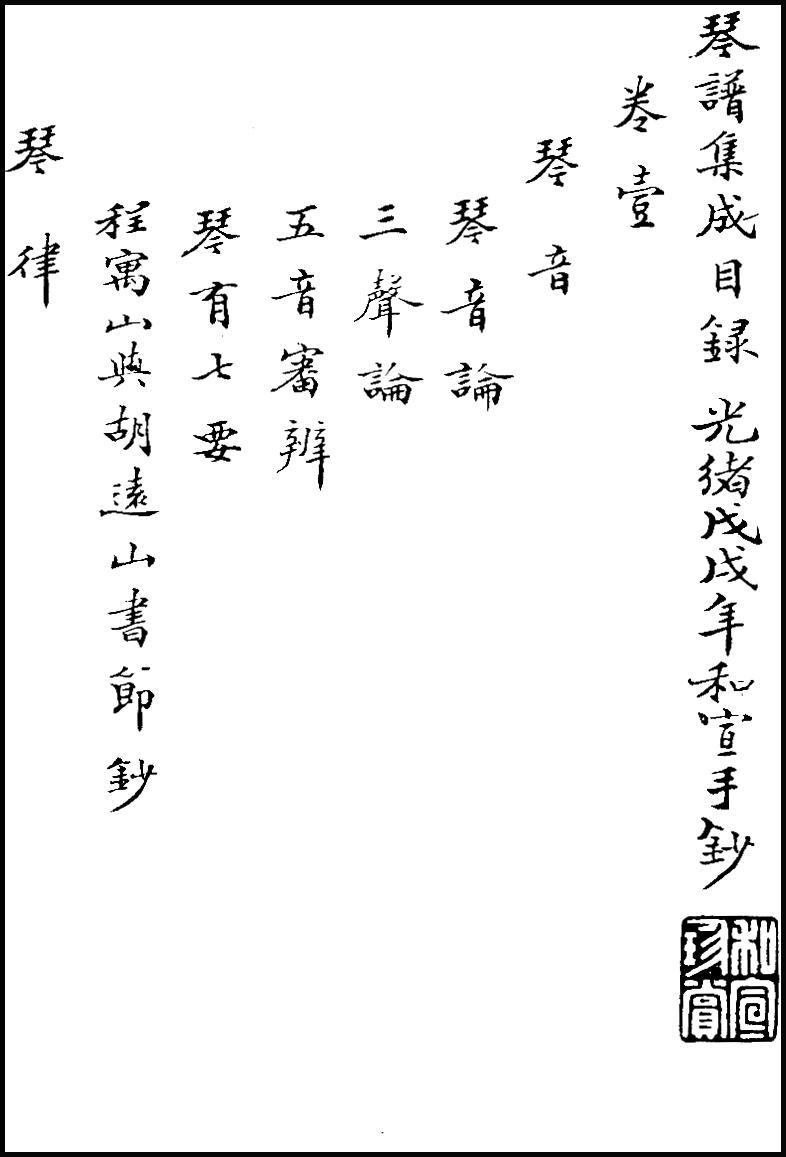 琴譜集成目録 光緒戊戌年和喧手鈔
和宣珍賞
卷壹
琴音
琴音論
三聲論
五音審辨
琴有七要
程寓山與胡遠山書節鈔
琴律